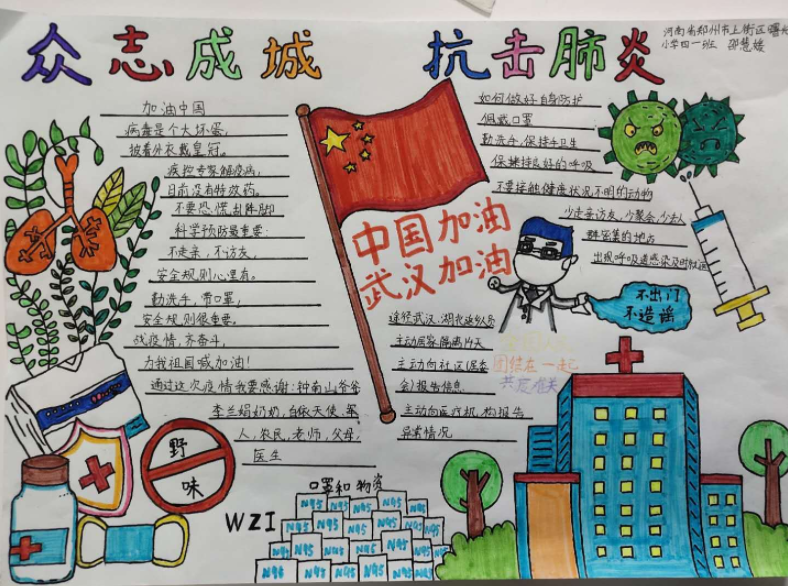 众志成城 抗击肺炎
河南省郑州市上街区曙光
小学四一班 邵慧媛
加油中国
病毒是个大坏蛋,
披着外衣戴皇冠。
疾控专家解疫病,
目前没有特效药。
不要恐慌乱阵脚
科学预防最重要:
不走亲,不访友,
安全规则心里有。
勤洗手,带口罩,
安全规则很重要。
战疫情,齐奋斗,
为我祖国喊加油!
通过这次疫情我要感谢:钟南山爷爷
李兰娟奶奶,白衣天使,军
人,农民,老师,父母,
医生
中国加油
武汉加油
如何做好自身防护
佩戴口罩
勤洗手,保持手卫生
保持良好的呼吸
不要接触健康状况不明的动物
少走亲访友,少聚会,少去人
群密集的地方
出现呼吸道感染及时就医
不出门
不造谣
途径武汉,湖北返乡人员
主动居家隔离14天
主动向社区(居委
会)报告信息
主动向医疗机构报告
异常情况
团结在一起
共度难关
野味
口罩和物资
WZI
N95 N95 N95 N95
N95 N95 N95 N95 N95
N95 N95 N95 N95 N95
N95 N95 N95 N95 N95